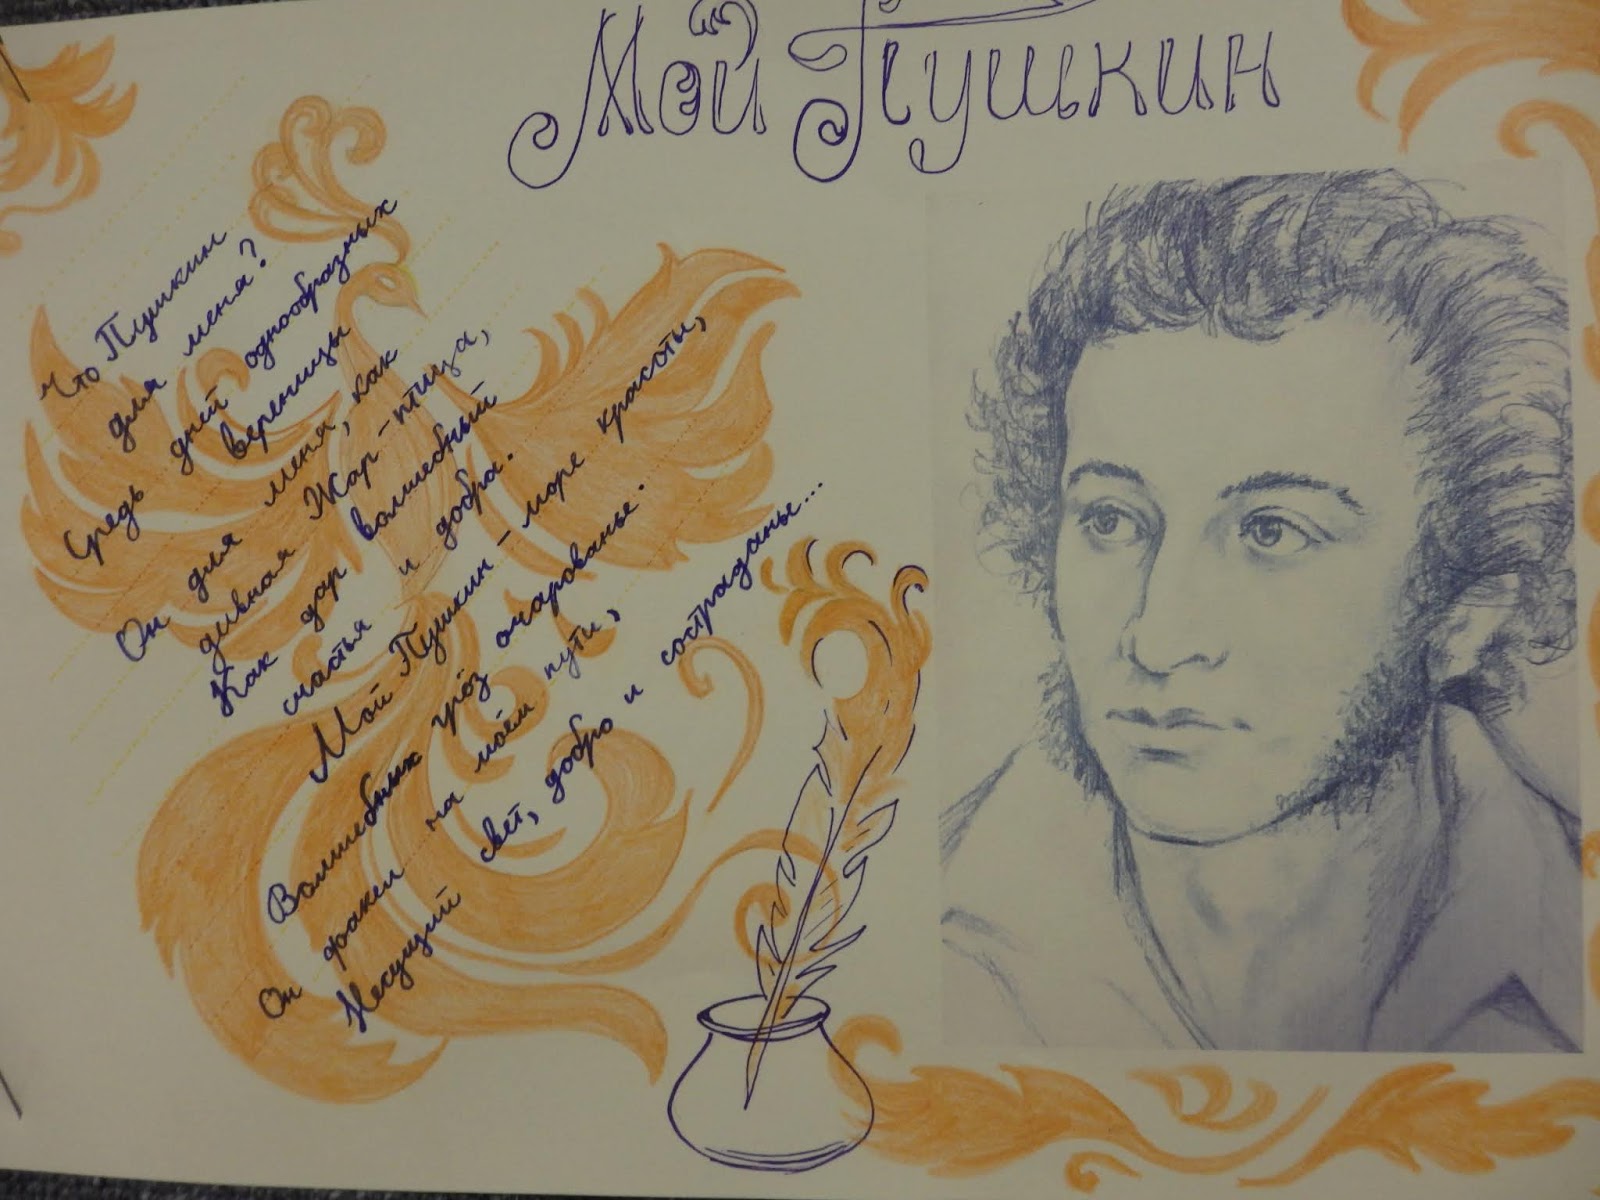 Мой Пушкин
Что Пушкин
для меня?
Средь дней однообразных
вереницы
Он для меня, как
дивная Жар-птица,
Как дар волшебный
счастья и добра.
Мой Пушкин - море красоты,
Волшебных грёз очарованье.
Он факел на моём пути,
Несущий свет, добро и состраданье...